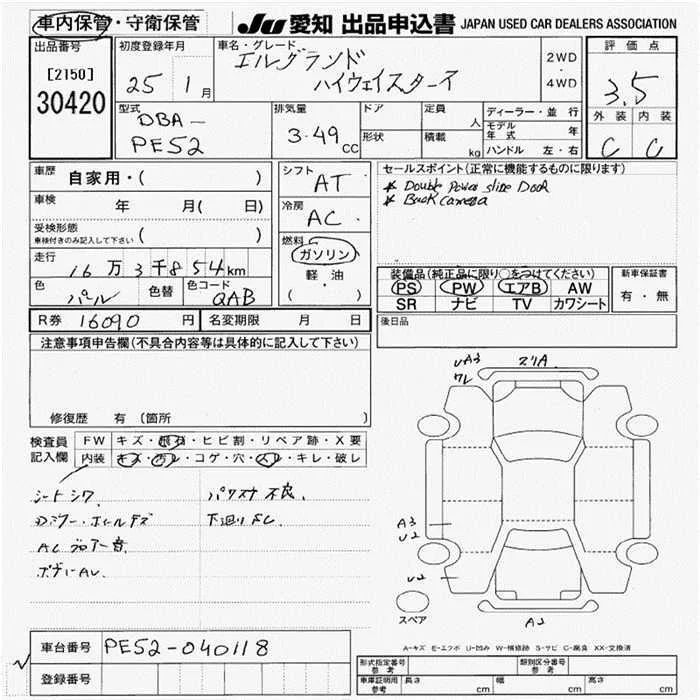 車内保管・守衛保管
JU 愛知 出品申込書 JAPAN USED CAR DEALERS ASSOCIATION
出品番号
[2150]
30420
初度登録年月
25 1月
車名・グレード
エルグランド
ハイウェイスター
2WD
・
4WD
評価点
3.5
外装 内装
C C
型式
DBA-
PE52
排気量
3.49cc
ドア
形状
定員 人
積載 kg
ディーラー・並行
モデル年式 年
ハンドル 左・右
車歴
自家用・( )
車検
年 月( 日)
受検形態
車検付きのみ記入して下さい ( )
走行
16万3千854km
色
パール
色替
色コード
QAB
シフト
AT
冷房
AC
燃料
ガソリン
・
軽油
・
( )
セールスポイント(正常に機能するものに限ります)
* Double Power slire Door
* Back camera
装備品(純正品に限り○をつけてください)
PS PW エアB AW
SR ナビ TV カワシート
新車保証書
有・無
R券 16090円
名変期限 月 日
後日品
注意事項申告欄(不具合内容等は具体的に記入して下さい)
修復歴 有 (箇所 )
検査員
記入欄
FW キズ・飛石・ヒビ割・リペア跡・X要
内装 キズ・汚レ・コゲ・穴・スレ・キレ・破レ
シートシワ
パワスナ不良
Dミラー・ホイールキズ
下廻りサビ
ACブロアー音
UA3
ワレ
スリA
A3
U2
U2
A2
スペア
A-キズ E-エフボ U-凹み W-補修跡 S-サビ C-腐食 XX-交換済
車台番号
PE52-040118
登録番号
形式指定番号
参考
類別区分番号
参考
車庫証明用
参考
長さ cm
幅 cm
高さ cm